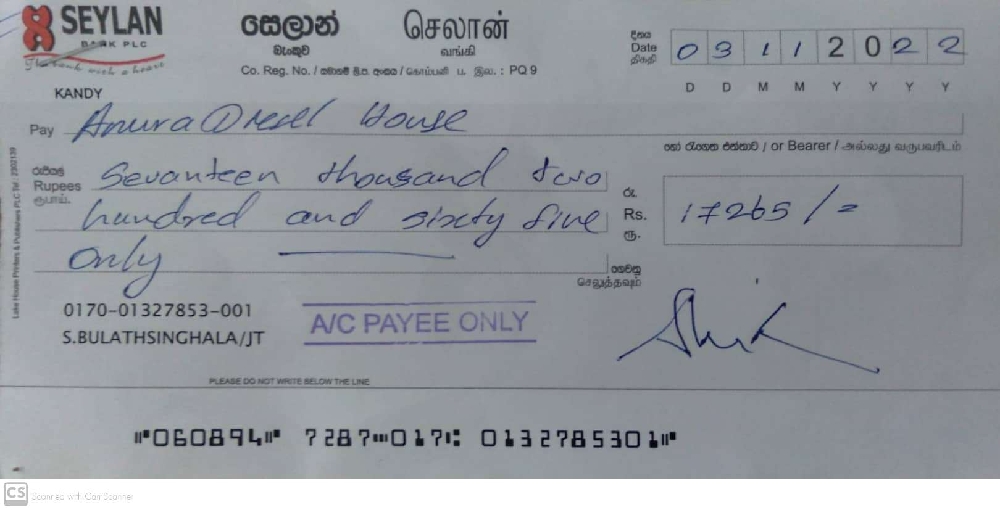 SEYLAN
BANK PLC
The bank with a heart
සෙලාන්
බැංකුව
செலான்
வங்கி
Co. Reg. No. / සමාගම් ලි.ප. අංකය / கொம்பனி ப. இல. : PQ 9
දිනය
Date
திகதி
0 3 1 1 2 0 2 2
D D M M Y Y Y Y
KANDY
Pay Anura Diesel House
හෝ රැගෙන එන්නාට / or Bearer / அல்லது வருபவரிடம்
රුපියල්
Rupees
ரூபாய்.
Sevanteen thousand two
hundred and sixty five
only
රු.
Rs.
ரூ.
17265/=
ගෙවනු
செலுத்தவும்
0170-01327853-001
S.BULATHSINGHALA/JT
A/C PAYEE ONLY
PLEASE DO NOT WRITE BELOW THE LINE
⑈060894⑈ 7287⑉017⑆ 0132785301⑈
Lake House Printers & Publishers PLC Tel : 2302139
CS Scanned with CamScanner